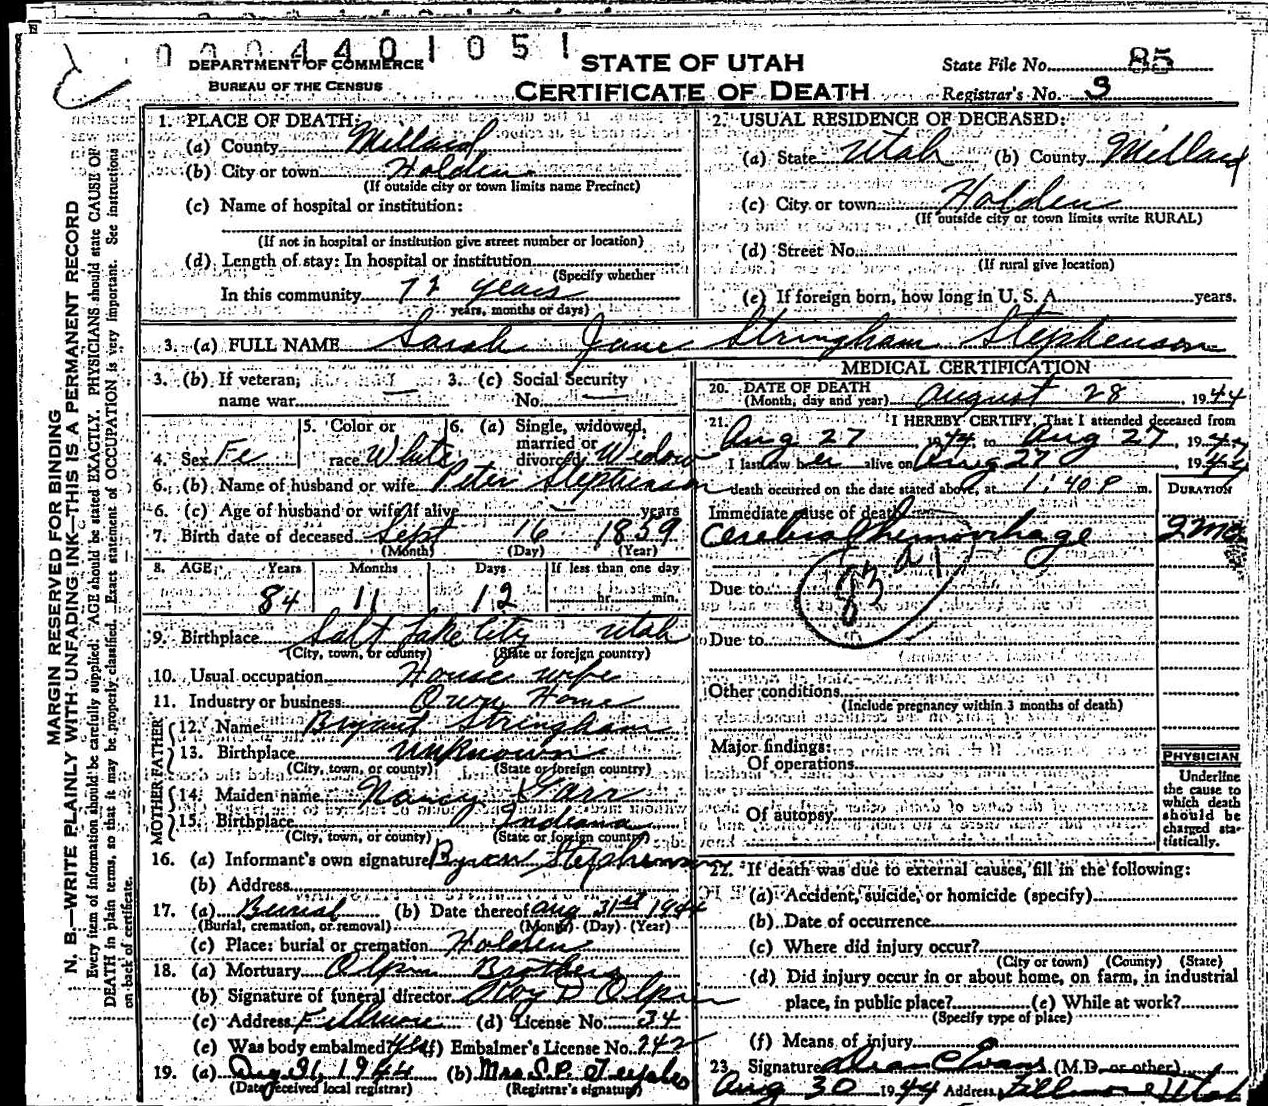 0004401051
DEPARTMENT OF COMMERCE
BUREAU OF THE CENSUS
STATE OF UTAH
CERTIFICATE OF DEATH
State File No. 85
Registrar's No. 3
MARGIN RESERVED FOR BINDING
N. B.—WRITE PLAINLY WITH UNFADING INK—THIS IS A PERMANENT RECORD
Every item of information should be carefully supplied. AGE should be stated EXACTLY. PHYSICIANS should state CAUSE OF
DEATH in plain terms, so that it may be properly classified. Exact statement of OCCUPATION is very important. See instructions
on back of certificate.
1. PLACE OF DEATH:
(a) County Millard
(b) City or town Holden
(If outside city or town limits name Precinct)
(c) Name of hospital or institution:
(If not in hospital or institution give street number or location)
(d) Length of stay: In hospital or institution
(Specify whether
In this community 72 years
years, months or days)
2. USUAL RESIDENCE OF DECEASED:
(a) State Utah (b) County Millard
(c) City or town Holden
(If outside city or town limits write RURAL)
(d) Street No.
(If rural give location)
(e) If foreign born, how long in U. S. A. years.
3. (a) FULL NAME Sarah Jane Stringham Stephenson
3. (b) If veteran, name war — 3. (c) Social Security No. —
4. Sex Fe 5. Color or race White 6. (a) Single, widowed, married or divorced Widow
6. (b) Name of husband or wife Peter Stephenson
6. (c) Age of husband or wife if alive — years
7. Birth date of deceased Sept 16 1859
(Month) (Day) (Year)
8. AGE: Years Months Days If less than one day
84 11 12 hr. min.
9. Birthplace Salt Lake City Utah
(City, town, or county) (State or foreign country)
10. Usual occupation House wife
11. Industry or business Own Home
FATHER
12. Name Bryant Stringham
13. Birthplace unknown
(City, town, or county) (State or foreign country)
MOTHER
14. Maiden name Nancy Garr
15. Birthplace Indiana
(City, town, or county) (State or foreign country)
16. (a) Informant's own signature Byron Stephenson
(b) Address
17. (a) Burial (b) Date thereof Aug 31st 1944
(Burial, cremation, or removal) (Month) (Day) (Year)
(c) Place: burial or cremation Holden
18. (a) Mortuary Olpin Brothers
(b) Signature of funeral director Roy D Olpin
(c) Address Fillmore (d) License No. 34
(e) Was body embalmed? Yes (f) Embalmer's License No. 242
19. (a) Aug 31, 1944 (b) Mrs S.P. Teeples
(Date received local registrar) (Registrar's signature)
MEDICAL CERTIFICATION
20. DATE OF DEATH
(Month, day and year) August 28, 1944
21. I HEREBY CERTIFY, That I attended deceased from
Aug 27 1944 to Aug 27, 1944
I last saw her alive on Aug 27 1944
death occurred on the date stated above, at 1:40 P m.
DURATION
Immediate cause of death
Cerebral hemorrhage
83 a 1
Due to
Due to
Other conditions
(Include pregnancy within 3 months of death)
Major findings:
Of operations
Of autopsy
PHYSICIAN
Underline
the cause to
which death
should be
charged sta-
tistically.
22. If death was due to external causes, fill in the following:
(a) Accident, suicide, or homicide (specify)
(b) Date of occurrence
(c) Where did injury occur?
(City or town) (County) (State)
(d) Did injury occur in or about home, on farm, in industrial
place, in public place? (e) While at work?
(Specify type of place)
(f) Means of injury
23. Signature Evans (M.D. or other)
Aug 30 1944 Address Fillmore Utah